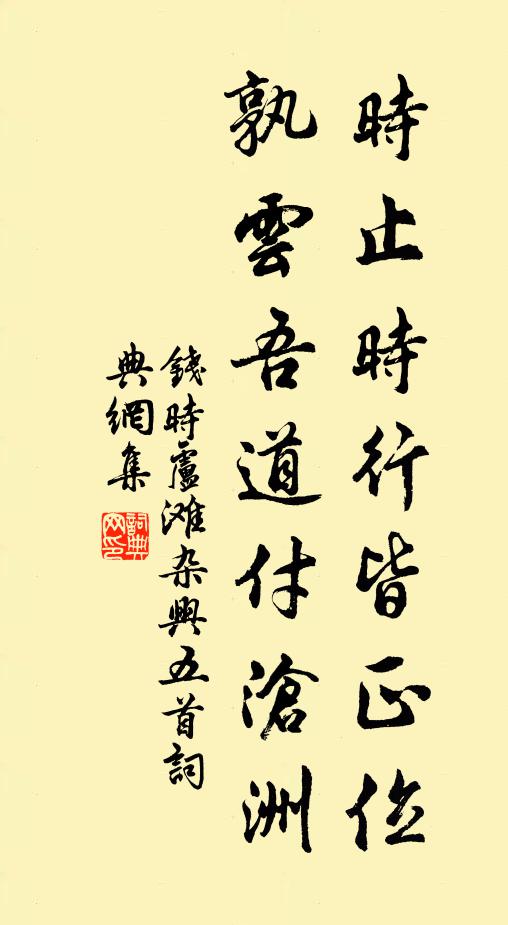 時止時行皆正位
孰雲吾道付滄洲
錢時盧滩杂興五首詞
典網集
詞典
网印